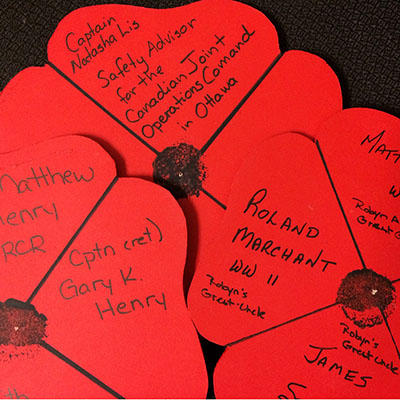 Captain
Natasha Lis
Safety Advisor
for the
Canadian Joint
Operations Comand
in Ottawa
Matthew
Henry
RCR
Cptn (ret)
Gary K.
Henry
ROLAND
MARCHANT
WW II
Robyn's
Great-Uncle
MATT
W
Robyn
Great
Robyn's
Great Uncle
JAMES
S